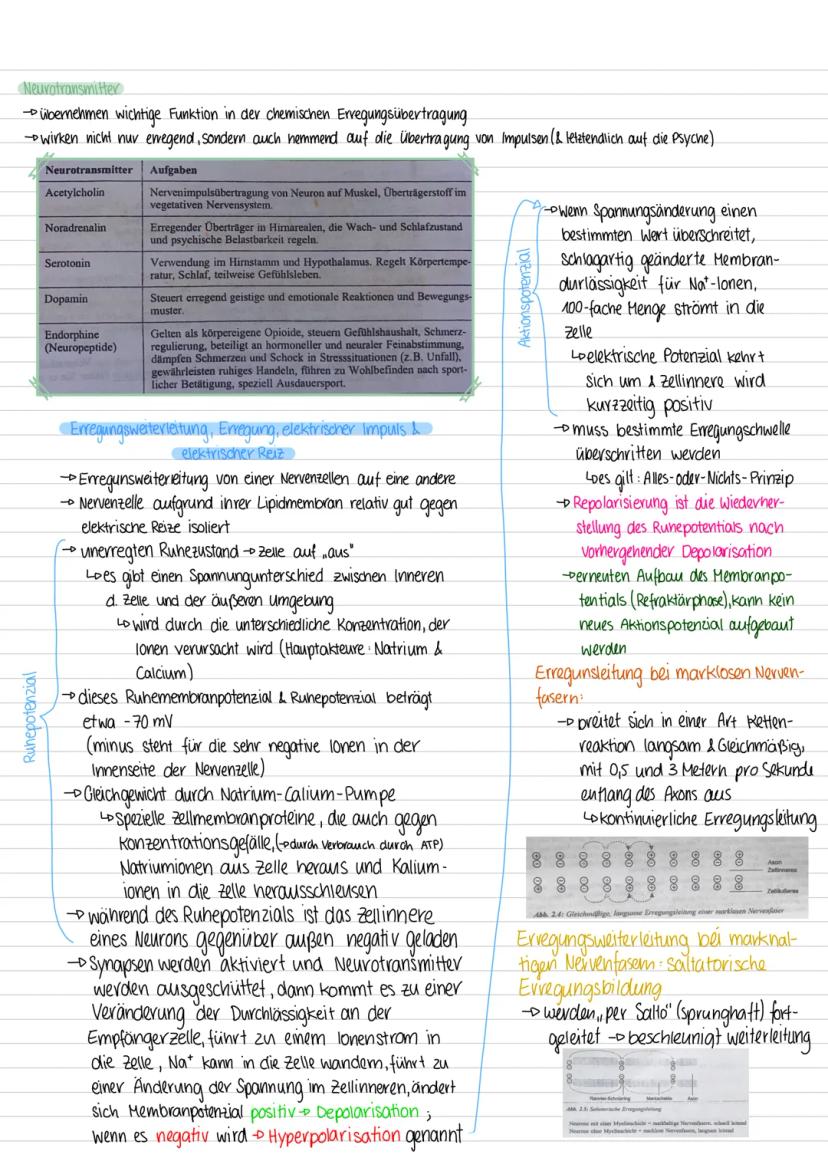 Neurotransmitter
→ übernehmen wichtige Funktion in der chemischen Erregungsübertragung
→ wirken nicht nur erregend, sondern auch hemmend auf die Übertragung von Impulsen (& letztendlich auf die Psyche)
Neurotransmitter Aufgaben
Acetylcholin Nervenimpulsübertragung von Neuron auf Muskel, Überträgerstoff im
vegetativen Nervensystem.
Noradrenalin Erregender Überträger in Hirnarealen, die Wach- und Schlafzustand
und psychische Belastbarkeit regeln.
Serotonin Verwendung im Hirnstamm und Hypothalamus. Regelt Körpertempe-
ratur, Schlaf, teilweise Gefühlsleben.
Dopamin Steuert erregend geistige und emotionale Reaktionen und Bewegungs-
muster.
Endorphine Gelten als körpereigene Opioide, steuern Gefühlshaushalt, Schmerz-
(Neuropeptide) regulierung, beteiligt an hormoneller und neuraler Feinabstimmung,
dämpfen Schmerzen und Schock in Stresssituationen (z.B. Unfall),
gewährleisten ruhiges Handeln, führen zu Wohlbefinden nach sport-
licher Betätigung, speziell Ausdauersport.
Erregungsweiterleitung, Erregung, elektrischer Impuls &
elektrischer Reiz
→ Erregunsweiterleitung von einer Nervenzellen auf eine andere
→ Nervenzelle aufgrund ihrer Lipidmembran relativ gut gegen
elektrische Reize isoliert
Ruhepotenzial
→ unerregten Ruhezustand → Zelle auf „aus"
↳ es gibt einen Spannungunterschied zwischen Inneren
d. Zelle und der äußeren Umgebung
↳ wird durch die unterschiedliche Konzentration, der
Ionen verursacht wird (Hauptakteure: Natrium &
Calcium)
→ dieses Ruhemembranpotenzial & Ruhepotenzial beträgt
etwa -70 mV
(minus steht für die sehr negative Ionen in der
Innenseite der Nervenzelle)
→ Gleichgewicht durch Natrium-Calium-Pumpe
↳ Spezielle Zellmembranproteine, die auch gegen
Konzentrationsgefälle, (→ durch Verbrauch durch ATP)
Natriumionen aus Zelle heraus und Kalium-
ionen in die Zelle herausschleusen
→ während des Ruhepotenzials ist das Zellinnere
eines Neurons gegenüber außen negativ geladen
→ Synapsen werden aktiviert und Neurotransmitter
werden ausgeschüttet, dann kommt es zu einer
Veränderung der Durchlässigkeit an der
Empfängerzelle, führt zu einem Ionenstrom in
die Zelle, Na⁺ kann in die Zelle wandern, führt zu
einer Änderung der Spannung im Zellinneren, ändert
sich Membranpotenzial positiv → Depolarisation ;
wenn es negativ wird → Hyperpolarisation genannt
Aktionspotenzial
→ Wenn Spannungsänderung einen
bestimmten Wert überschreitet,
schlagartig geänderte Membran-
durlässigkeit für Na⁺-Ionen,
100-fache Menge strömt in die
Zelle
↳ elektrische Potenzial kehrt
sich um & Zellinnere wird
kurzzeitig positiv
→ muss bestimmte Erregungschwelle
überschritten werden
↳ es gilt: Alles-oder-Nichts-Prinzip
→ Repolarisierung ist die Wiederher-
stellung des Ruhepotentials nach
vorhergehender Depolarisation
→ erneuten Aufbau des Membranpo-
tentials (Refraktärphase), kann kein
neues Aktionspotenzial aufgebaut
werden
Erregunsleitung bei marklosen Nerven-
fasern:
→ breitet sich in einer Art Ketten-
reaktion langsam & Gleichmäßig,
mit 0,5 und 3 Metern pro Sekunde
entlang des Axons aus
↳ kontinuierliche Erregungsleitung
Axon
Zellinneres
Zelläußeres
Abb. 2.4: Gleichmäßige, langsame Erregungsleitung einer marklosen Nervenfaser
Erregungsweiterleitung bei markhal-
tigen Nervenfasern: saltatorische
Erregungsbildung
→ werden „per Salto" (sprunghaft) fort-
geleitet → beschleunigt weiterleitung
Ranvier-Schnürring Markscheide Axon
Abb. 2.5: Saltatorische Erregungsleitung
Neurone mit einer Myelinschicht = markhaltige Nervenfasern, schnell leitend
Neurone ohne Myelinschicht = marklose Nervenfasern, langsam leitend